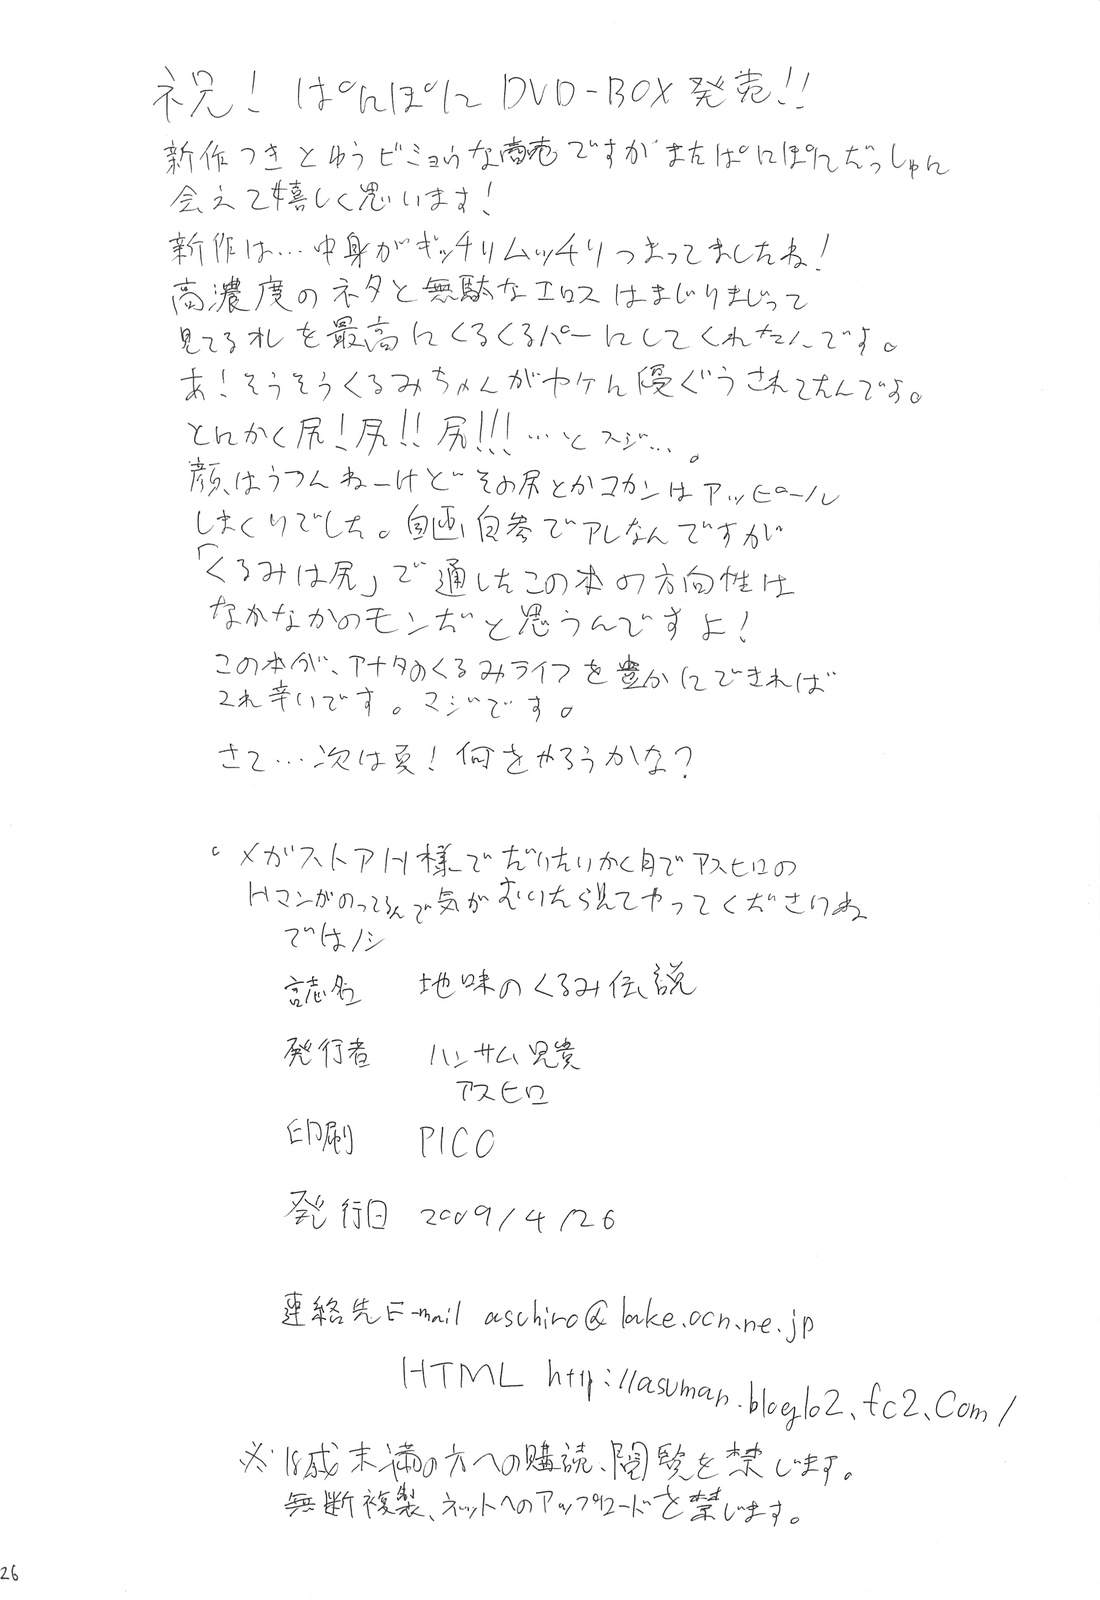 祝！ ぱにぽに DVD-BOX 発売!!
新作つきとゆうビミョウな商売ですが またぱにぽにだっしゅに
会えて嬉しく思います！
新作は…中身がギッチリムッチリつまってましたね！
高濃度のネタと無駄なエロスはまじりまじって
見てるオレを最高にくるくるパーにしてくれたんです。
あ！そうそうくるみちゃんがヤケに優ぐうされてたんですよ。
とにかく尻！尻!!尻!!! …とスジ…。
顔はうつんねーけど その尻とかコカンはアッピール
しまくりでした。自画自参でアレなんですが
「くるみは尻」で通したこの本の方向性は
なかなかのモンだと思うんですよ！
この本が、アナタのくるみライフを豊かにできれば
これ幸いです。マジです。
さて…次は夏！何をやろうかな？
。メガストアH様でだいたいかく月でアスヒロの
Hマンがのってるんで気がむいたら見てやってくださいね
ではノシ
誌名 地味のくるみ伝説
発行者 ハンサム兄貴
アスヒロ
印刷 PICO
発行日 2009/4/26
連絡先 E-mail aschiro@lake.ocn.ne.jp
HTML http://asuman.blog102.fc2.com/
※18歳未満の方への購読、閲覧を禁じます。
無断複製、ネットへのアップロードを禁じます。
26